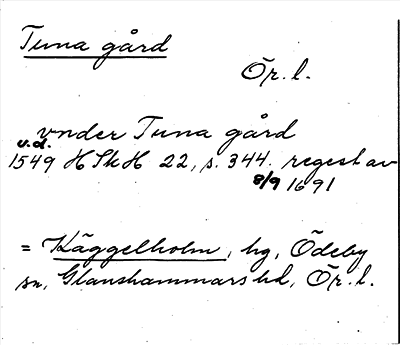 Tuna gård
Ör. l.
vnder Tuna gård
u.d.
1549 HSkH 22, s. 344. regest av
8/9 1691
= Käggelholm, hg, Ödeby
sn, Glanshammars hd, Ör. l.